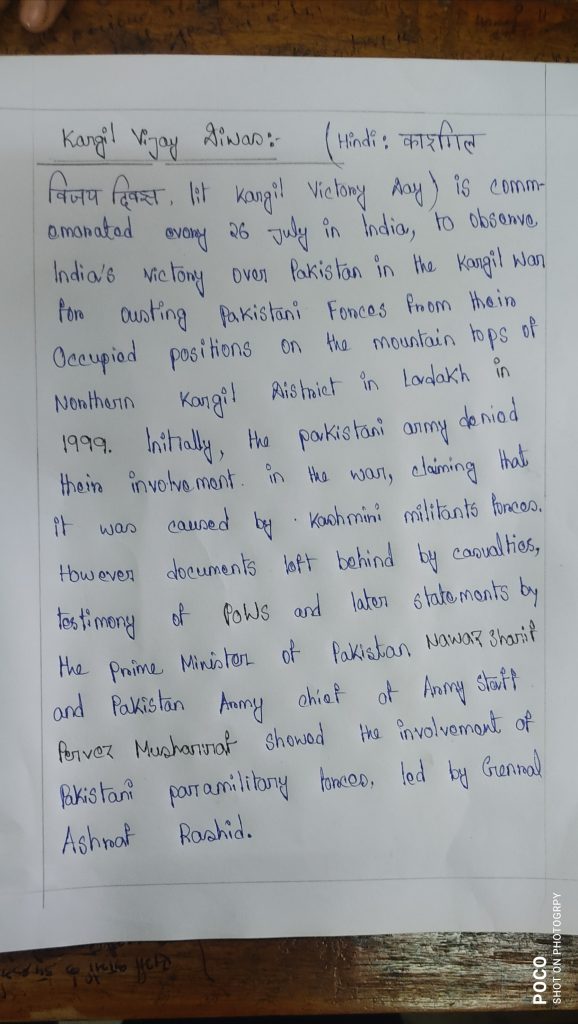 Kargil Vijay Diwas:- (Hindi: कारगिल
विजय दिवस, lit Kargil Victory Day) is comm-
emorated every 26 July in India, to observe
India's victory over Pakistan in the Kargil War
for ousting Pakistani Forces from their
Occupied positions on the mountain tops of
Northern Kargil District in Ladakh in
1999. Initially, the pakistani army denied
their involvement. in the war, claiming that
it was caused by Kashmiri militants forces.
However documents left behind by casualties,
testimony of POWS and later statements by
the prime Minister of Pakistan Nawaz Sharif
and Pakistan Army chief of Army staff
Pervez Musharraf showed the involvement of
Pakistani parramilitary forces, led by Genral
Ashraf Rashid.
POCO
SHOT ON PHOTOGRPY